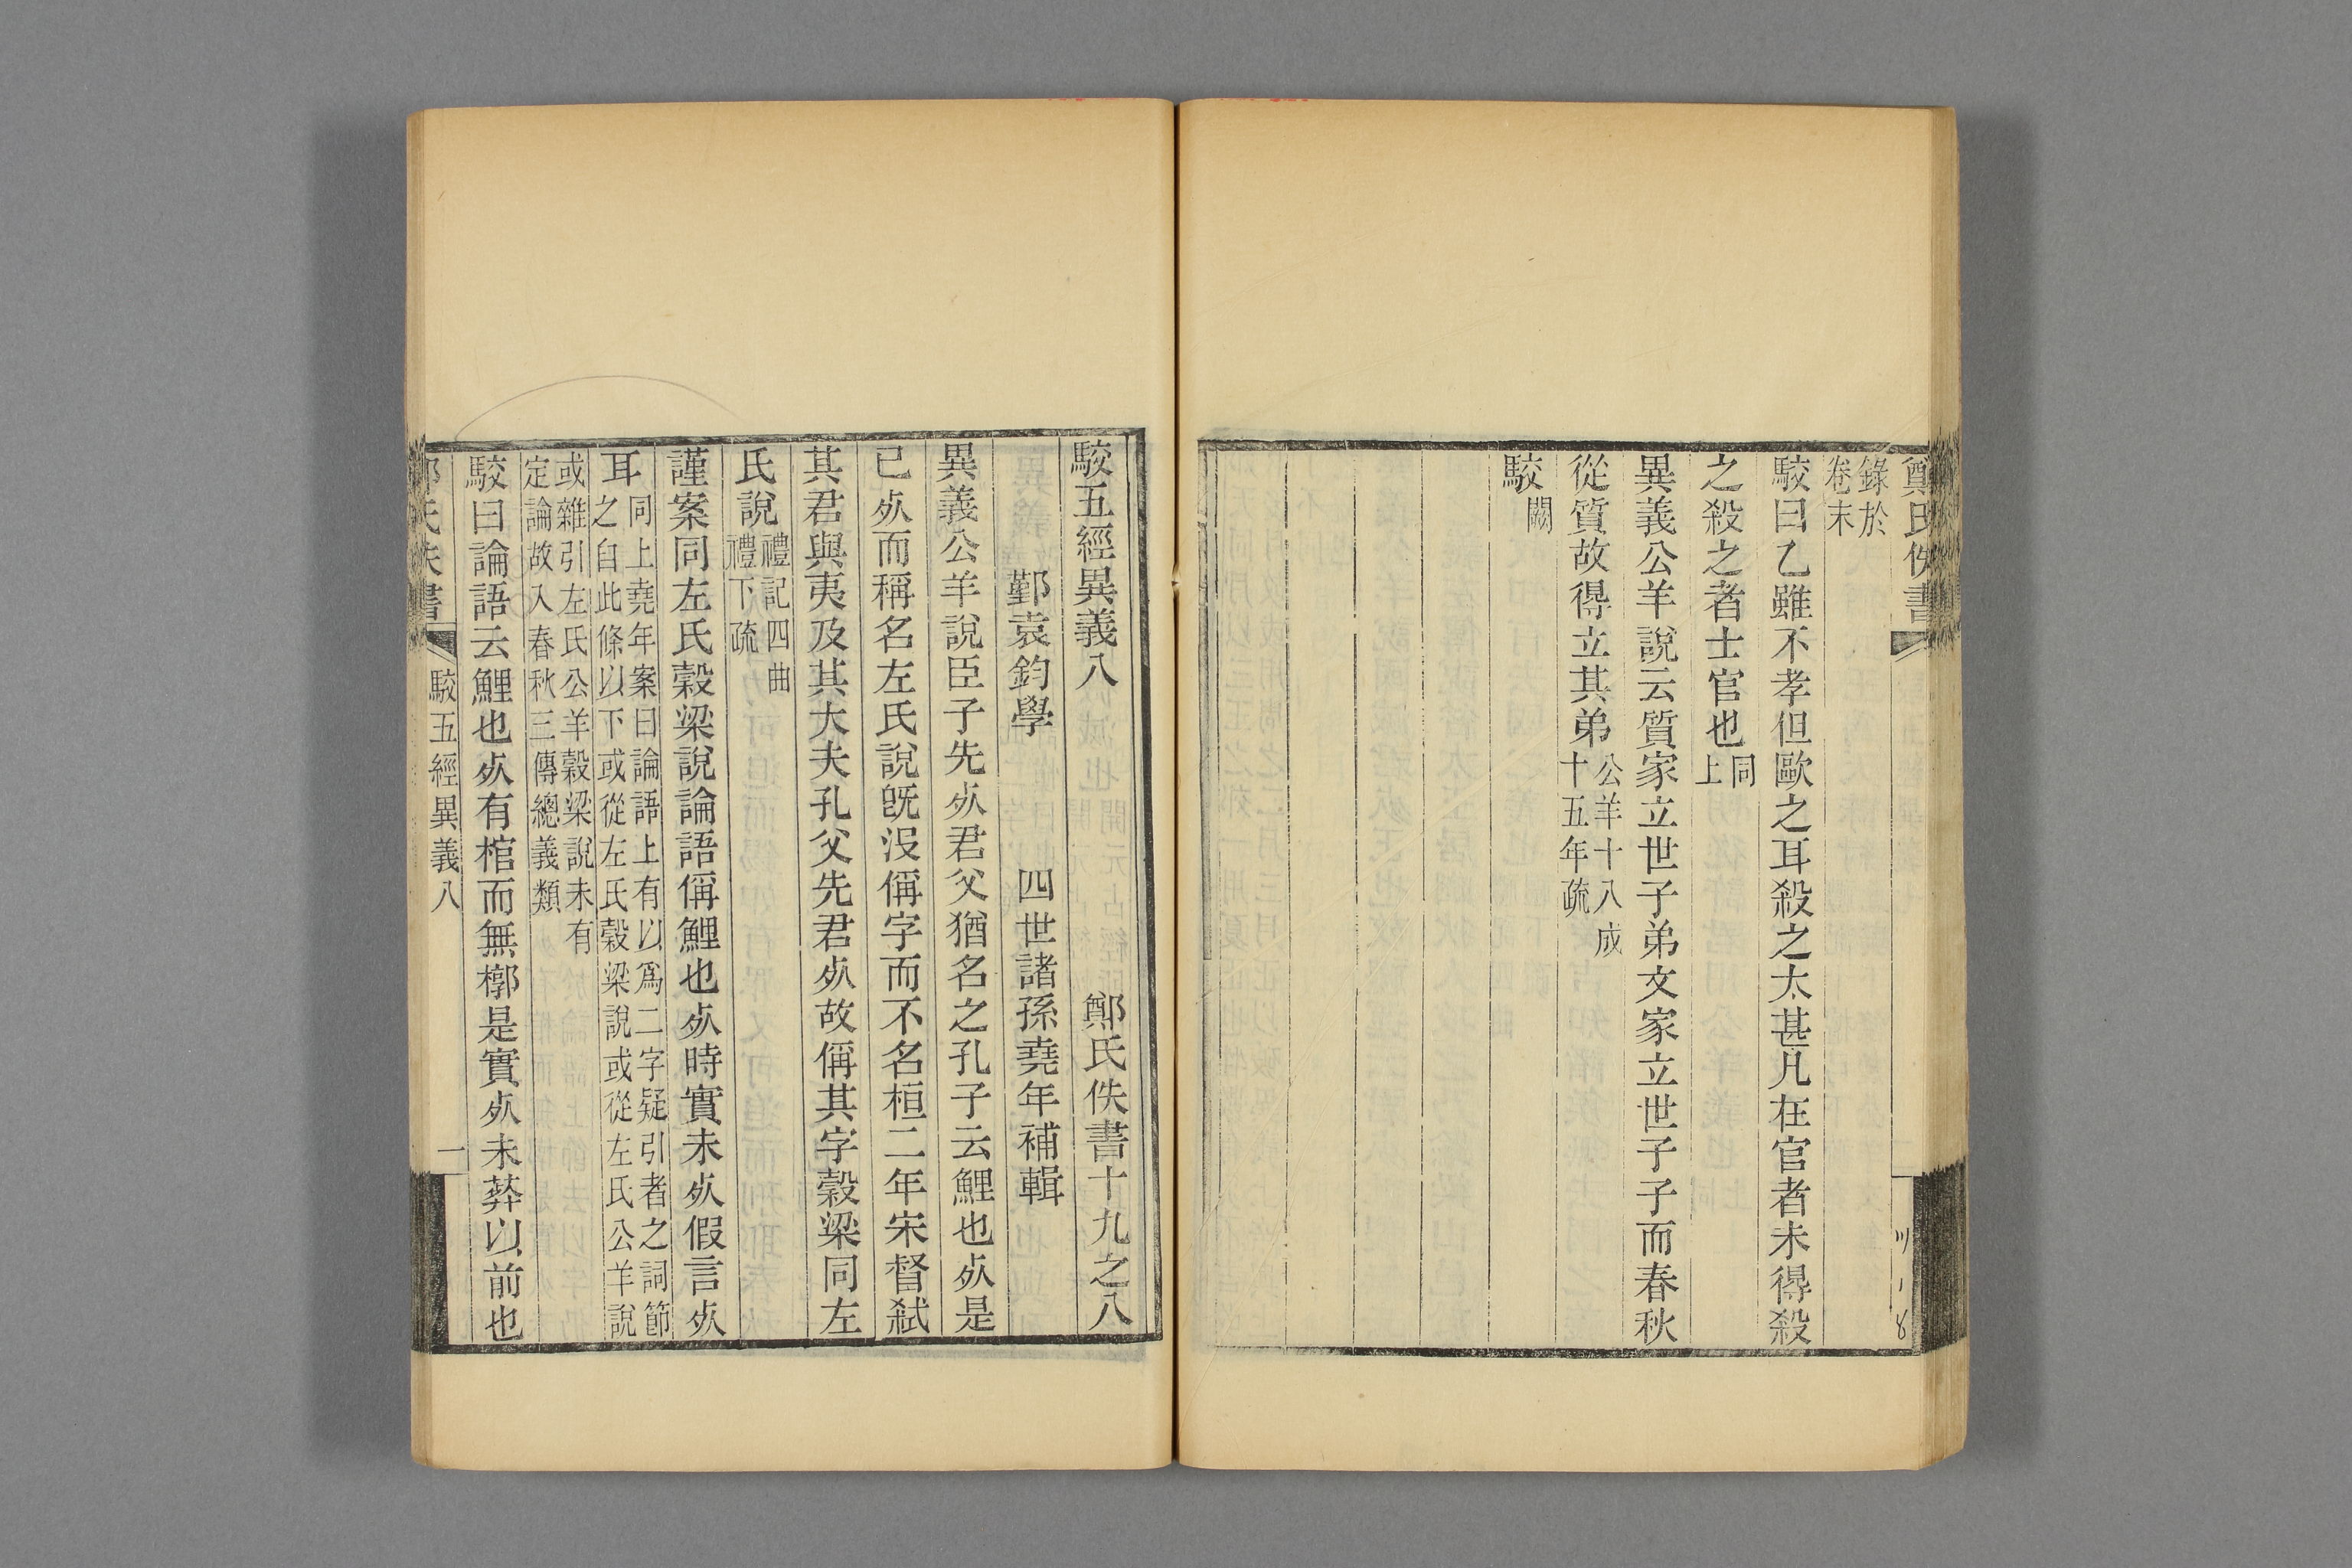 鄭氏佚書
錄於
卷末
駮曰乙雖不孝但歐之耳殺之太甚凡在官者未得殺
之殺之者士官也同上
異義公羊說云質家立世子弟文家立世子子而春秋
從質故得立其弟公羊十八成十五年疏
駮闕
駮五經異義八 鄭氏佚書十九之八
鄞袁鈞學 四世諸孫堯年補輯
異義公羊說臣子先𣦸君父猶名之孔子云鯉也𣦸是
已𣦸而稱名左氏說旣沒偁字而不名桓二年宋督弑
其君與夷及其大夫孔父先君𣦸故偁其字穀梁同左
氏說禮記四曲禮下疏
謹案同左氏穀梁說論語偁鯉也𣦸時實未𣦸假言𣦸
耳同上堯年案曰論語上有以爲二字疑引者之詞節
之自此條以下或從左氏穀梁說或從左氏公羊說
或雜引左氏公羊穀梁說未有
定論故入春秋三傳總義類
駮曰論語云鯉也𣦸有棺而無槨是實𣦸未葬以前也
鄭氏佚書 駮五經異義八 一